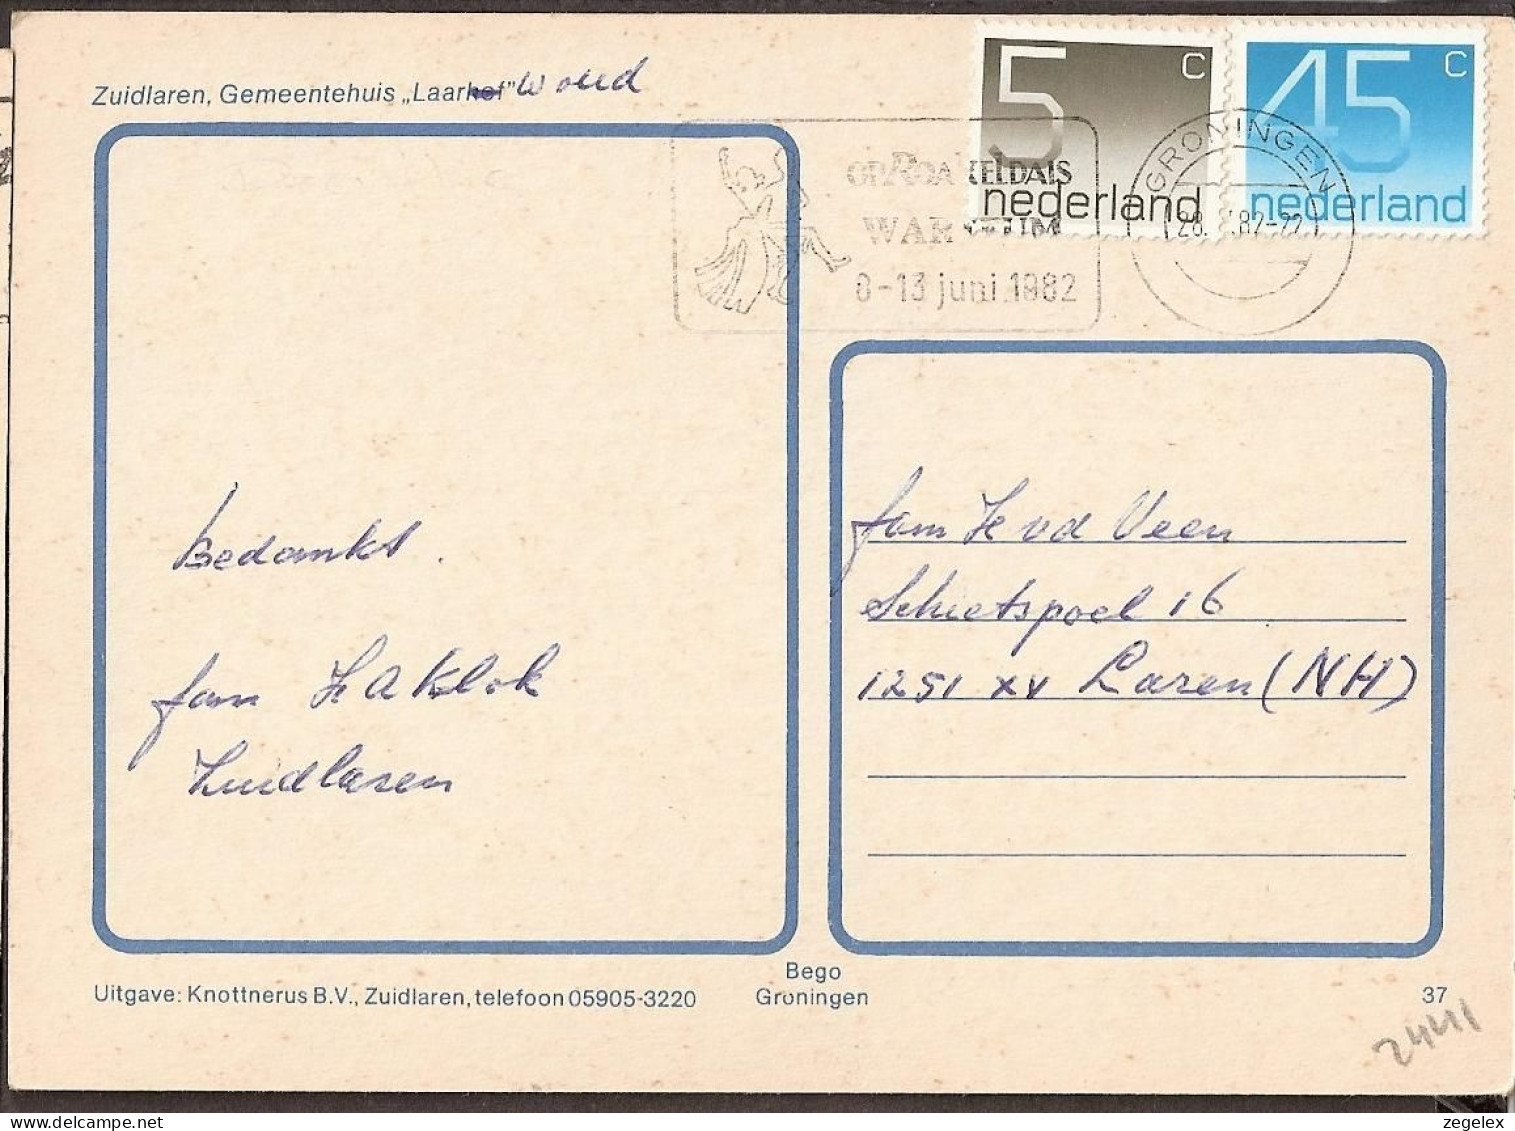 Zuidlaren, Gemeentehuis „Laarhof" woud
5 c
nederland
45 c
nederland
OP ROAKELDAIS
WARFFUM
8-13 juni 1982
GRONINGEN
28. 82-22
Bedankt.
fam H A Klok
Zuidlaren
fam H vd Veen
Schietspoel 16
1251 XV Laren (NH)
Bego
Groningen
Uitgave: Knottnerus B.V., Zuidlaren, telefoon 05905-3220
37
2441
zegelex